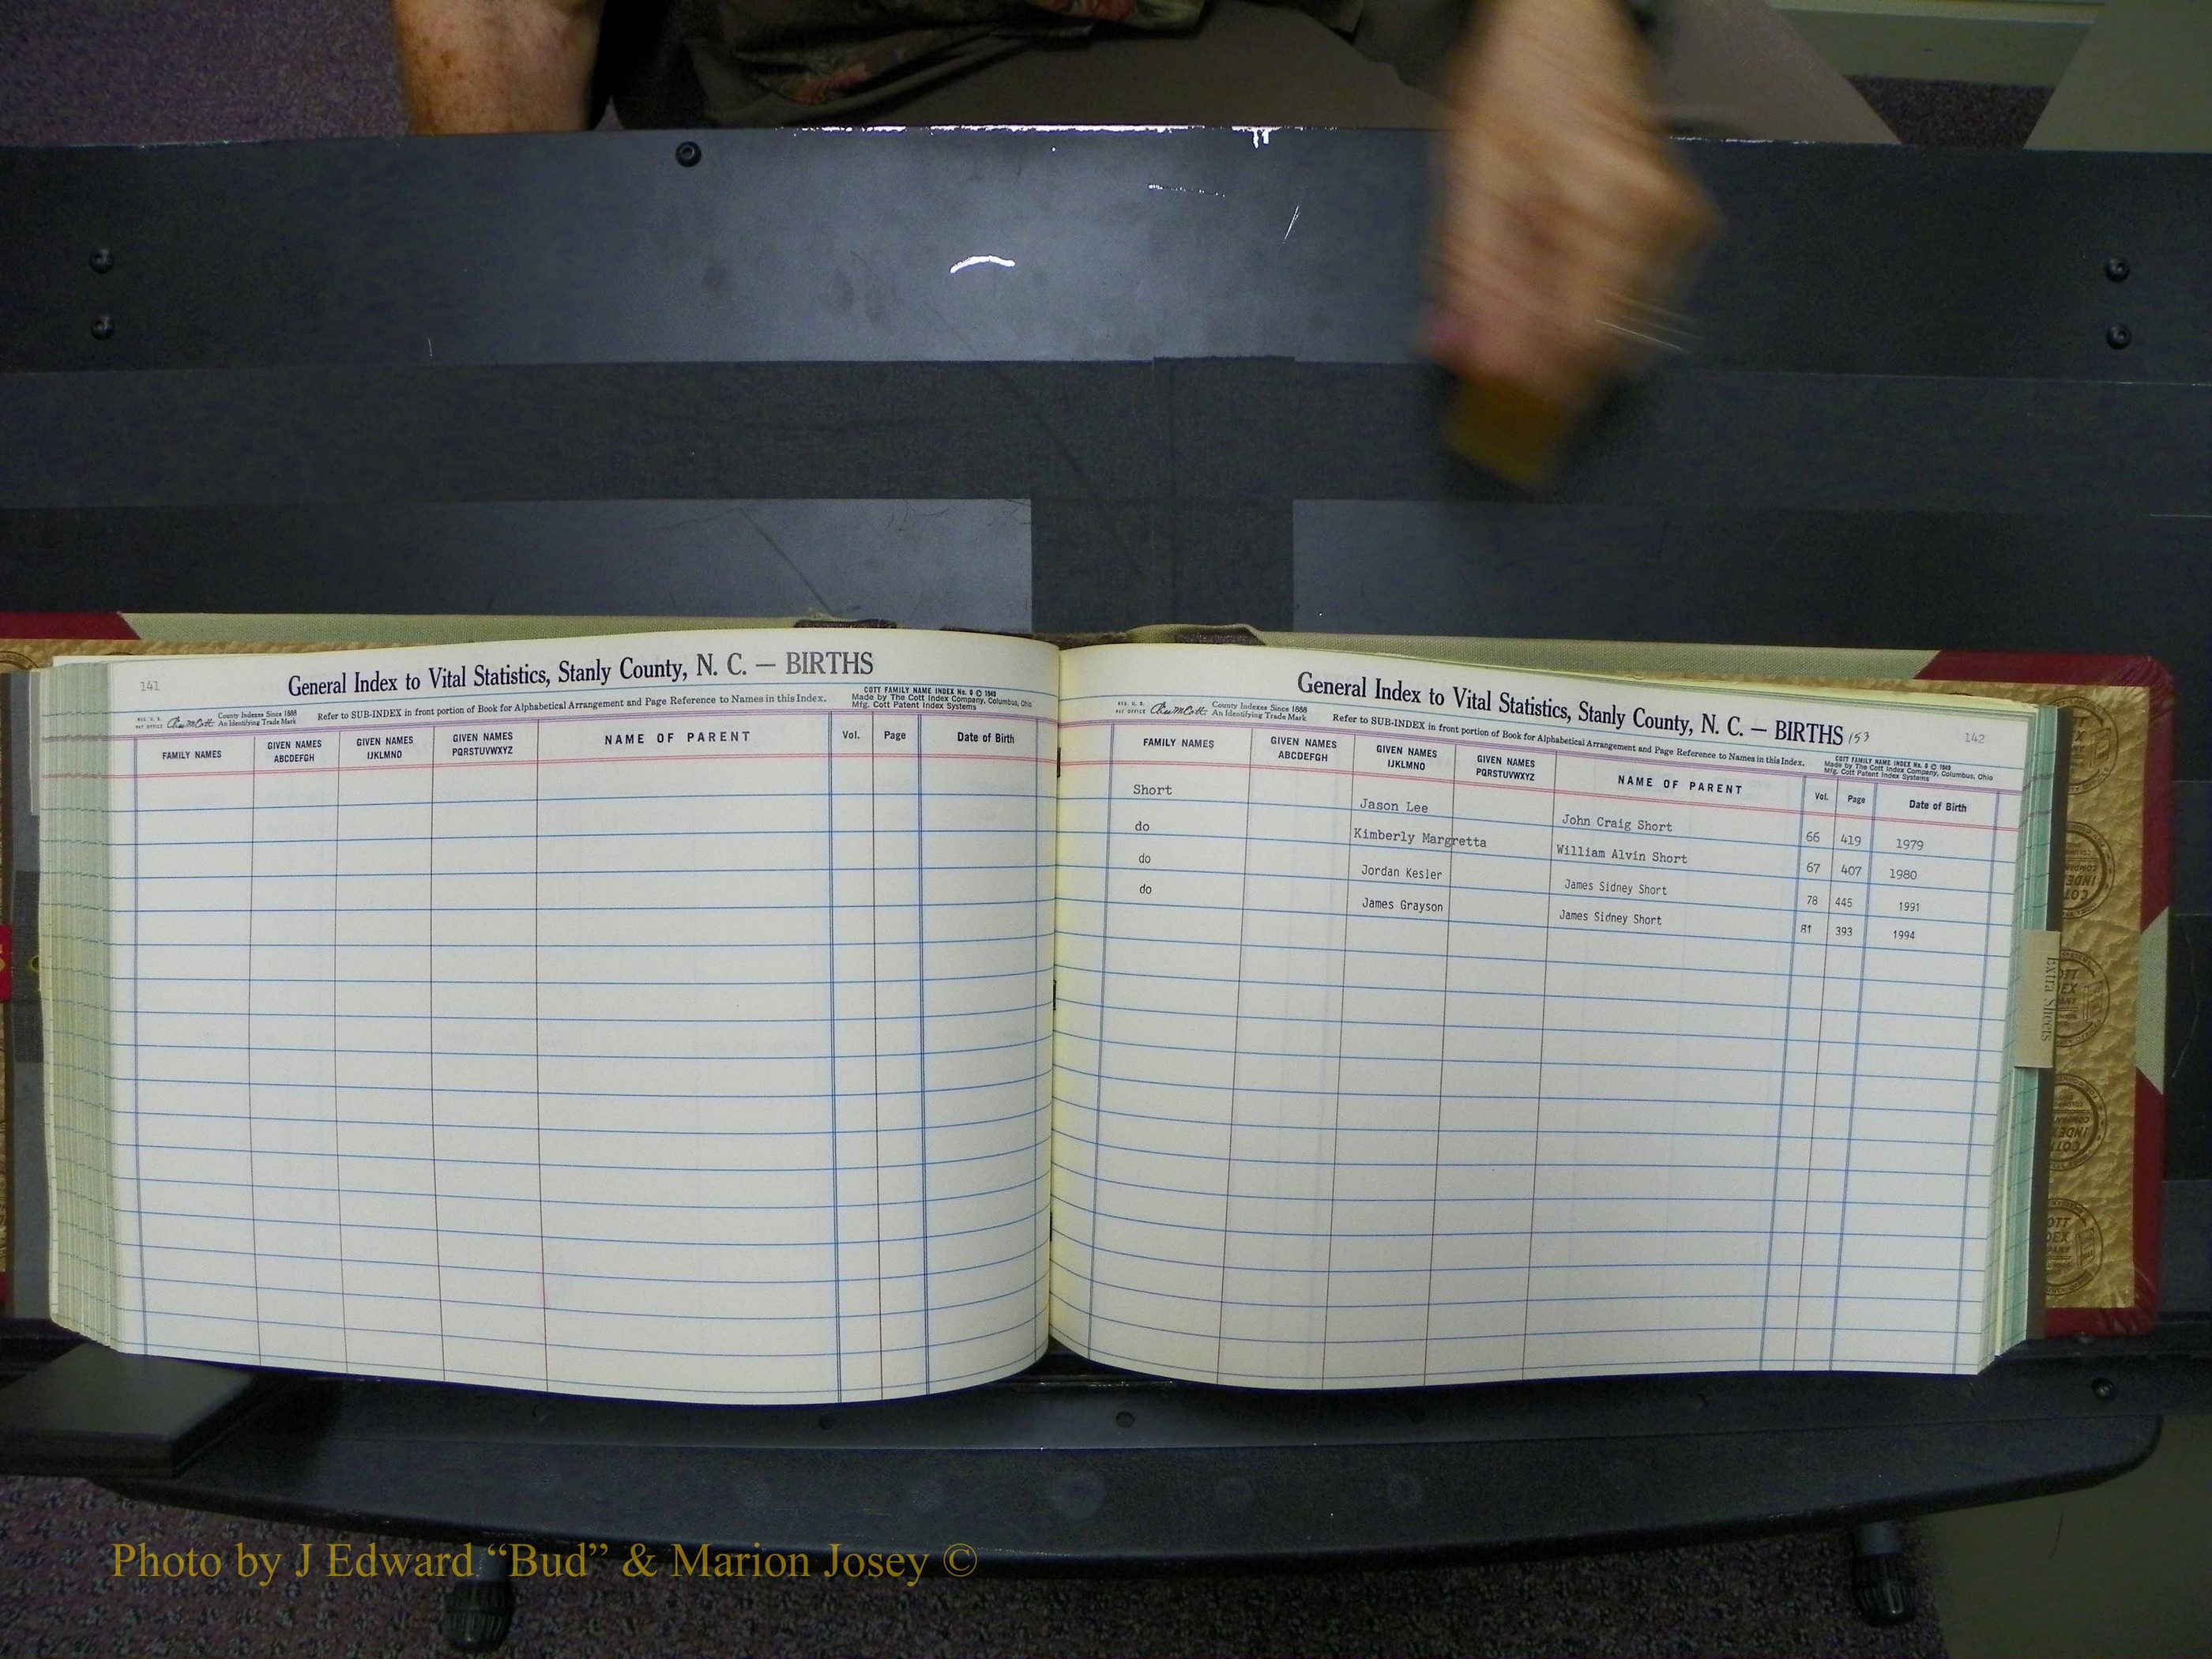 141
General Index to Vital Statistics, Stanly County, N. C. — BIRTHS
REG. U. S.
PAT OFFICE
County Indexes Since 1888
An Identifying Trade Mark
Refer to SUB-INDEX in front portion of Book for Alphabetical Arrangement and Page Reference to Names in this Index.
COTT FAMILY NAME INDEX No. 9 © 1949
Made by The Cott Index Company, Columbus, Ohio
Mfg. Cott Patent Index Systems
FAMILY NAMES GIVEN NAMES ABCDEFGH GIVEN NAMES IJKLMNO GIVEN NAMES PQRSTUVWXYZ NAME OF PARENT Vol. Page Date of Birth
General Index to Vital Statistics, Stanly County, N. C. — BIRTHS 153
142
REG. U. S.
PAT OFFICE
County Indexes Since 1888
An Identifying Trade Mark
Refer to SUB-INDEX in front portion of Book for Alphabetical Arrangement and Page Reference to Names in this Index.
COTT FAMILY NAME INDEX No. 9 © 1949
Made by The Cott Index Company, Columbus, Ohio
Mfg. Cott Patent Index Systems
FAMILY NAMES GIVEN NAMES ABCDEFGH GIVEN NAMES IJKLMNO GIVEN NAMES PQRSTUVWXYZ NAME OF PARENT Vol. Page Date of Birth
Short Jason Lee John Craig Short 66 419 1979
do Kimberly Margretta William Alvin Short 67 407 1980
do Jordan Kesler James Sidney Short 78 445 1991
do James Grayson James Sidney Short 81 393 1994
Extra Sheets
Photo by J Edward “Bud” & Marion Josey ©